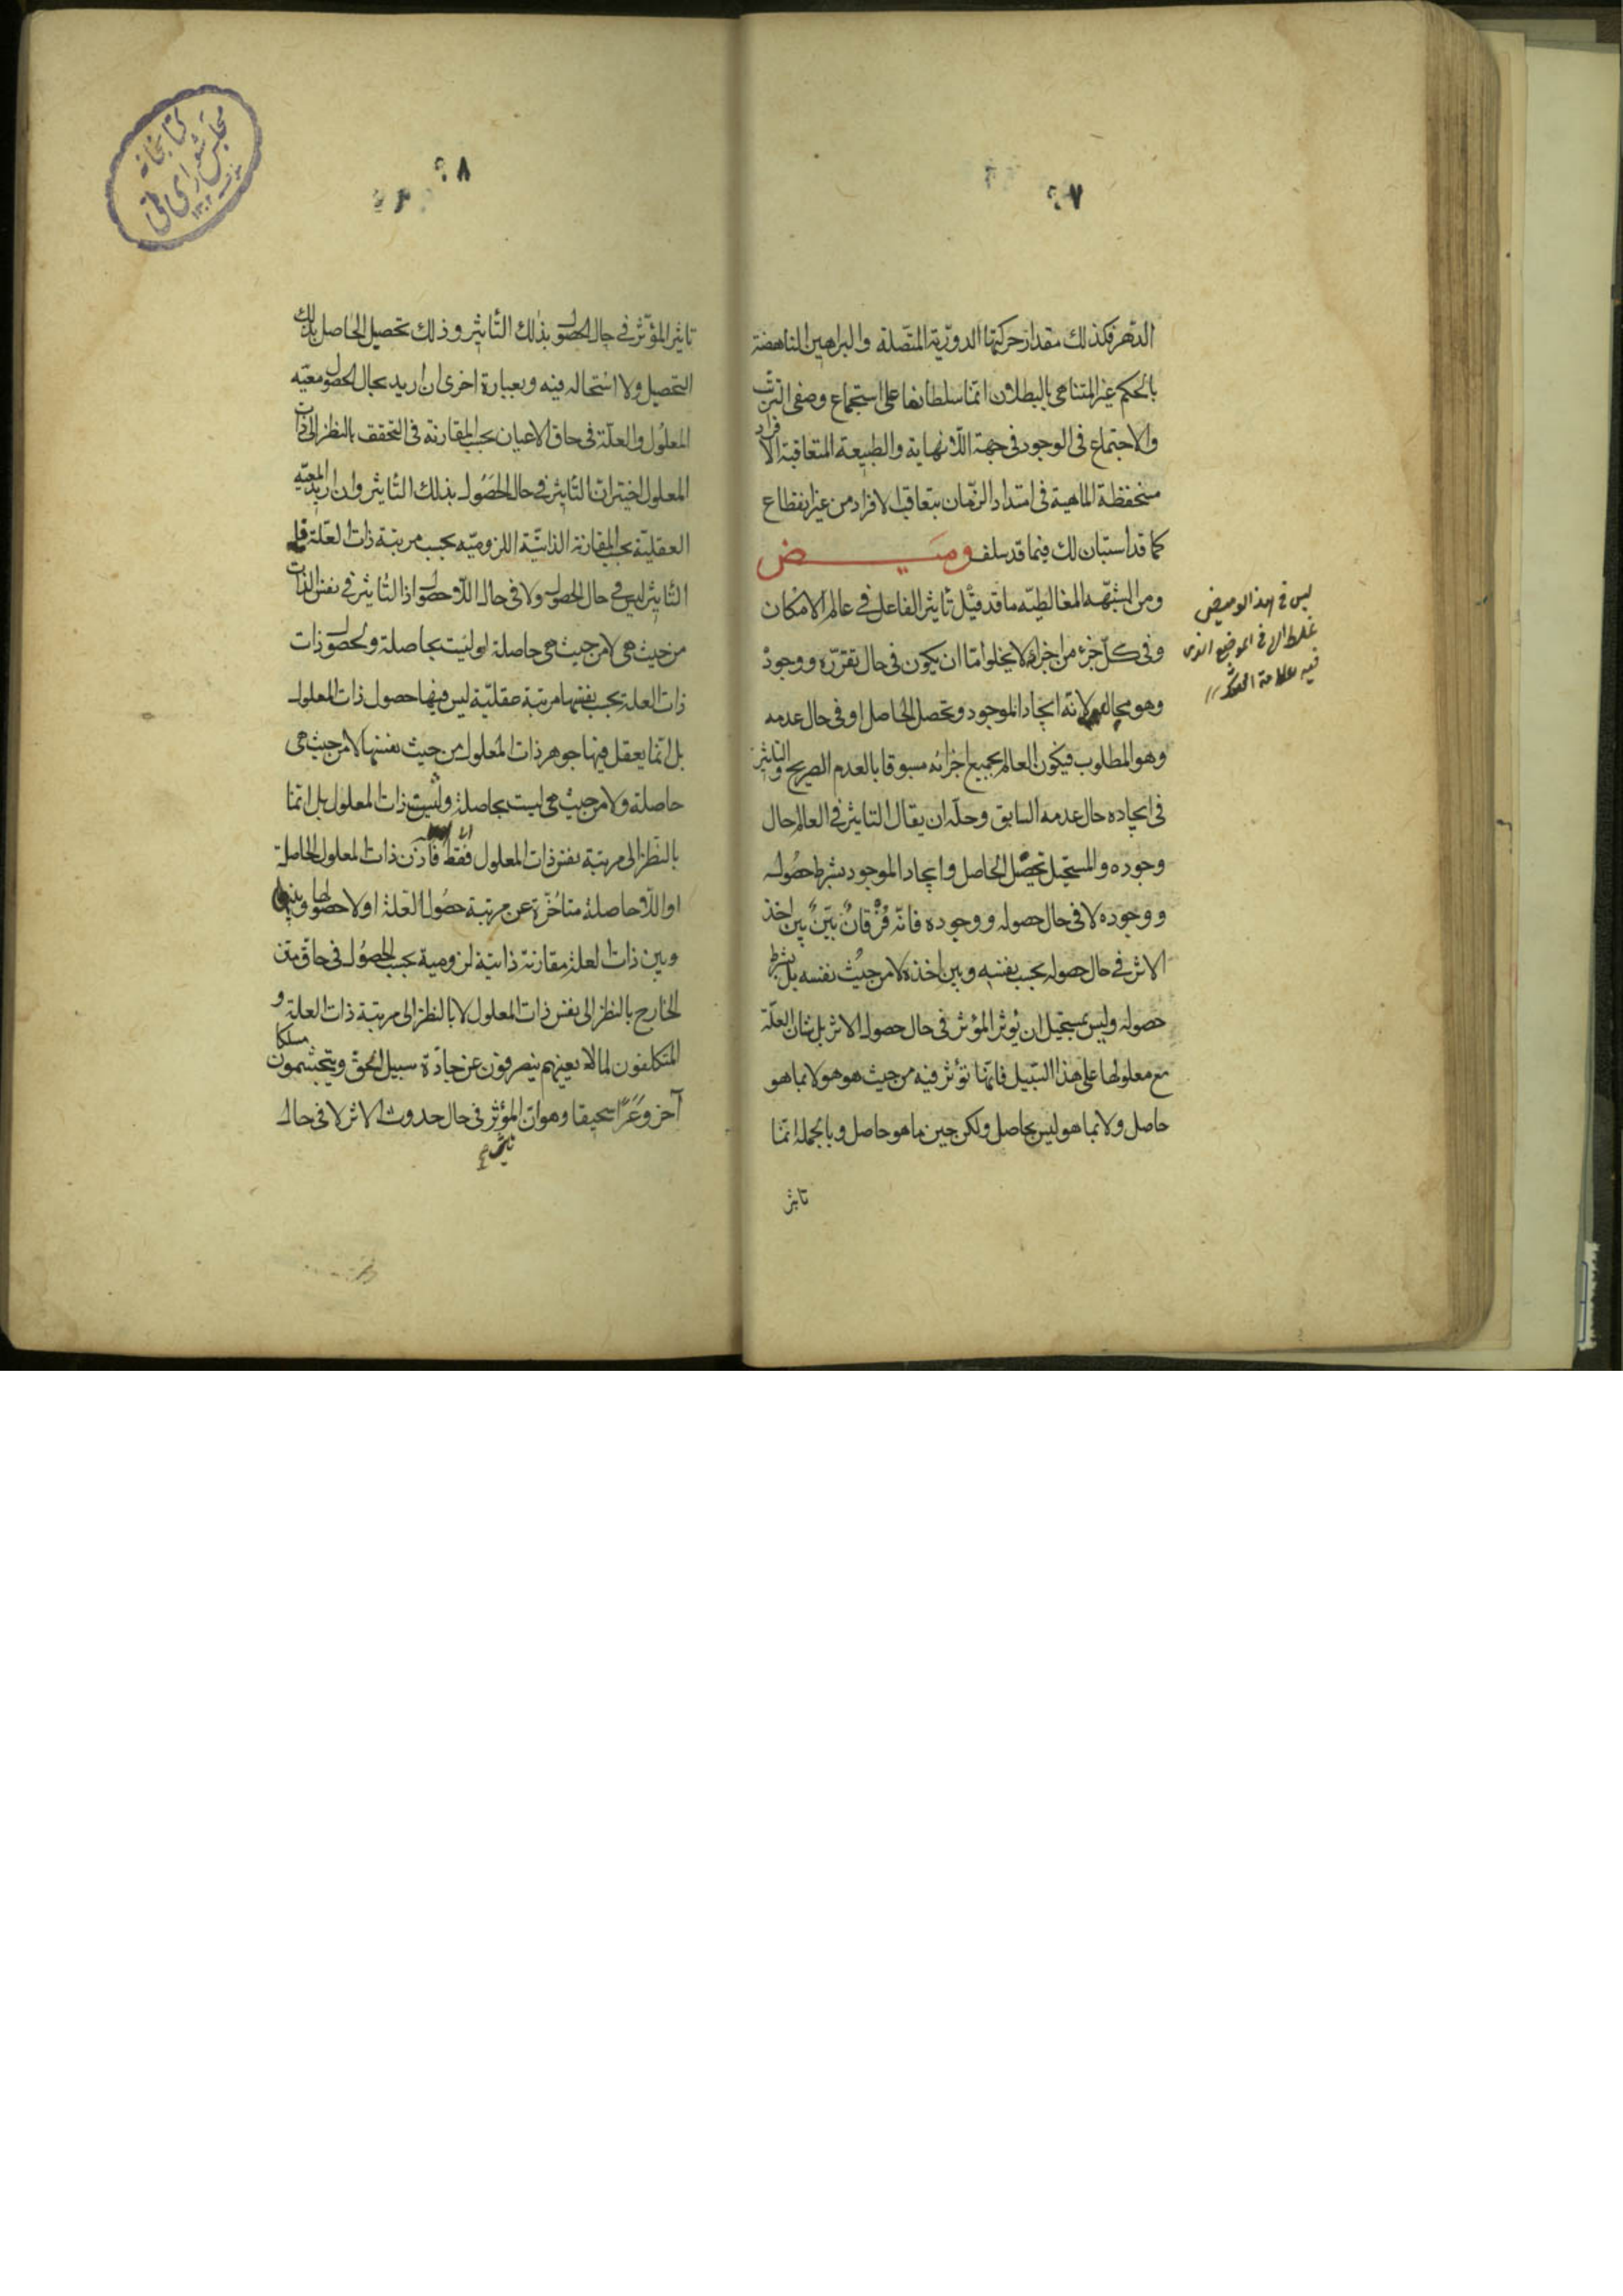 ٢٧
الدهر فكذلك مقدار حركتها الدورية المتصلة والبراهين الناهضة
بالحكم على غير المتناهى بالبطلان انما سلطانها على استجماع وصفى الترتب
والاجتماع فى الوجود فى جهة اللانهاية والطبيعة المتعاقبة الافراد
منحفظة الماهية فى امتداد الزمان بتعاقب الافراد من غير انقطاع
كما قد استبان لك فيما قد سلف وميض
ومن الشبهه المغالطيه ما قد قيل تأثير الفاعل فى عالم الامكان
وفى كل جزء من اجزائه لا يخلو اما ان يكون فى حال تقرره ووجوده
وهو محال لانه ايجاد الموجود وتحصل الحاصل او فى حال عدمه
وهو المطلوب فيكون العالم بجميع اجزائه مسبوقا بالعدم الصريح والتاثير
فى ايجاده حال عدمه السابق وحله ان يقال التاثير فى العالم حال
وجوده والمستحيل تحصيل الحاصل وايجاد الموجود بشرط حصوله
ووجوده لا فى حال حصوله ووجوده فانه فرقان بين بين اخذ
الاثر فى حال حصوله بحسب نفسه وبين اخذه لا من حيث نفسه بل بشرط
حصوله وليس بمستحيل ان يؤثر المؤثر فى حال حصول الاثر بل شان العلة
مع معلولها على هذا السبيل فانما تؤثر فيه من حيث هو هو لا بما هو
حاصل ولا بما هو ليس بحاصل ولكن حين ما هو حاصل وبالجملة انما
تاثير
ليس فى هذا الوميض
غلط الا فى الموضع الذى
فيه علامة
٢٨
تاثير المؤثر فى حال الحصول بذلك التأثير وذلك تحصيل الحاصل بذلك
التحصيل ولا استحاله فيه وبعبارة اخرى ان اريد بحال الحصول معيه
المعلول والعلة فى حاق الاعيان بحسب المقارنة فى التحقق بالنظر الى ذات
المعلول اختير ان التأثير فى حال الحصول بذلك التأثير وان اريد المعيه
العقلية بحسب المقارنة الذاتية اللزوميه بحسب مرتبة ذات العلة قيل
التأثير ليس فى حال الحصول ولا فى حال اللاحصول اذ التأثير فى نفس الذات
من حيث هى لا من حيث هى حاصلة او ليست بحاصلة ولحصول ذات
ذات العلة بحسب نفسها مرتبة عقلية ليس فيها حصول ذات المعلول
بل انما يعقل فيها جوهر ذات المعلول من حيث نفسها لا من حيث هى
حاصلة ولا من حيث هى ليست بحاصلة وليست ذات المعلول بل انما
بالنظر الى مرتبة نفس ذات المعلول فقط فاذن ذات المعلول الحاصلة
او اللاحاصلة متاخرة عن مرتبة حصول العلة اولا حصولها وبينها
وبين ذات العلة مقارنة ذاتية لزومية بحسب الحصول فى حاق متن
الخارج بالنظر الى نفس ذات المعلول لا بالنظر الى مرتبة ذات العلة و
المتكلفون لما لا يعنيهم ينصرفون عن جادة سبيل الحق ويتجشمون مسلكا
آخر وعرا سحيقا وهو ان المؤثر فى حال حدوث الاثر لا فى حال
كتابخانه
مجلس شوراى ملى
١٣٠٢